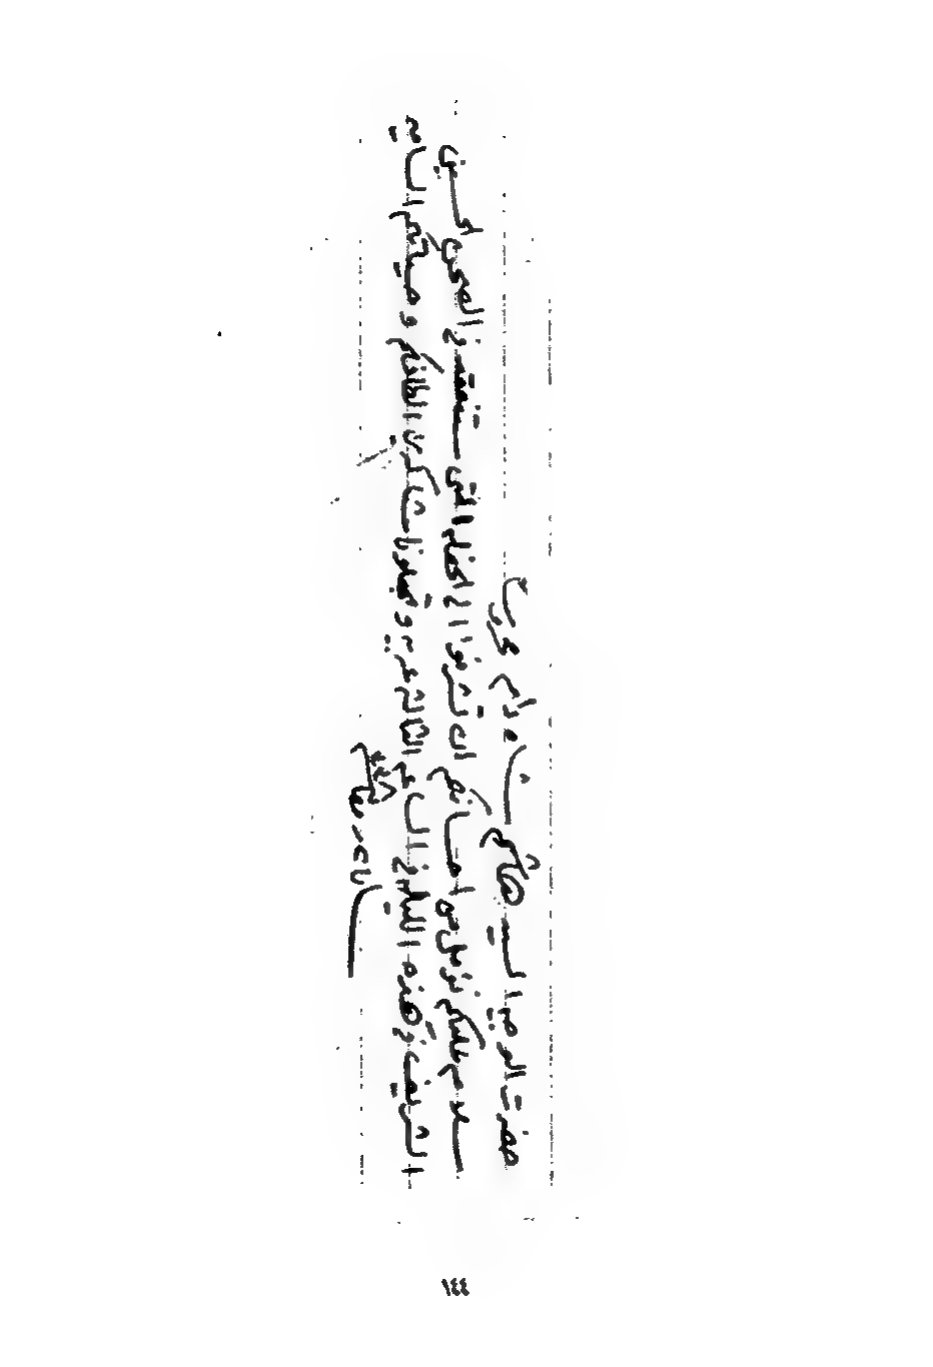 حضرت الوجيه السيد هاشم شاه دام محبت
سلام عليكم نؤمل من احسانكم ان تشرفوا الى الحفله التى ستنعقد فى الصحن الحسينى
الشريف فى هذه الليله فى الساعه الثالثه عربيه وتجعلونا شاكرين الطافكم وحسياتكم الساميه
١٤٤